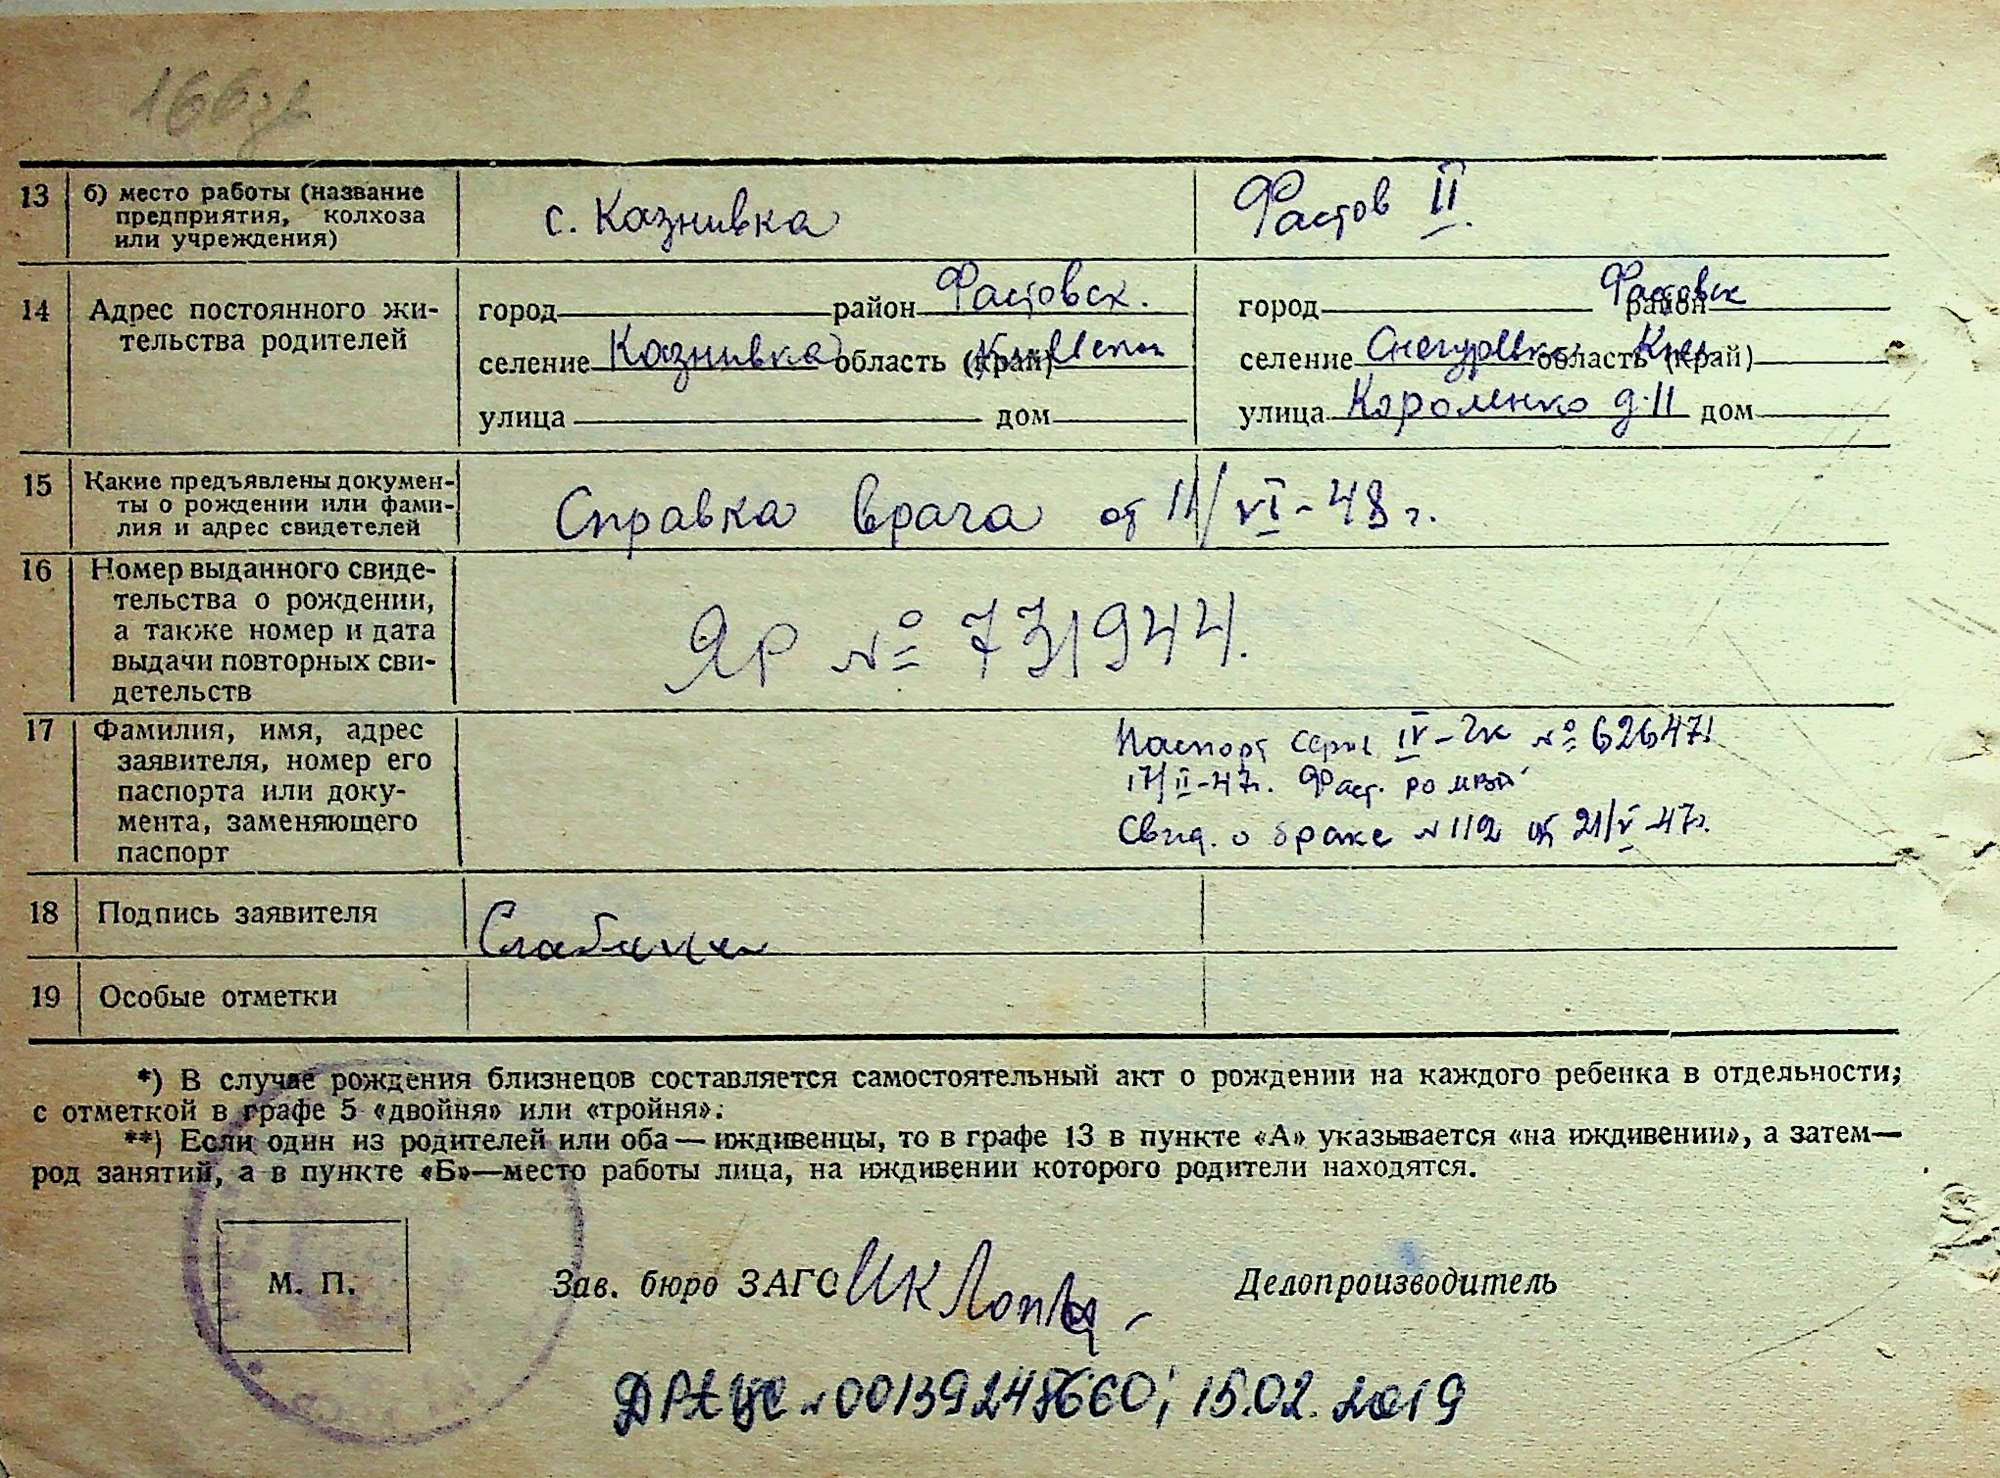 166зв
13 б) место работы (название предприятия, колхоза или учреждения) с. Казнивка Фастов II.
14 Адрес постоянного жительства родителей
город район Фастовск. город район Фастовск
селение Казнивка область (край) Киевск селение Снегуровка область (край) Киев
улица дом улица Короленко д. 11 дом
15 Какие предъявлены документы о рождении или фамилия и адрес свидетелей Справка врача от 11/VI-48 г.
16 Номер выданного свидетельства о рождении, а также номер и дата выдачи повторных свидетельств ЯР № 731944.
17 Фамилия, имя, адрес заявителя, номер его паспорта или документа, заменяющего паспорт
Паспорт серия IV-ЧК № 626471
17/II-47г. Фаст. РО МВД
Свид. о браке № 112 от 21/V-47г.
18 Подпись заявителя
19 Особые отметки
*) В случае рождения близнецов составляется самостоятельный акт о рождении на каждого ребенка в отдельности;
с отметкой в графе 5 «двойня» или «тройня».
**) Если один из родителей или оба — иждивенцы, то в графе 13 в пункте «А» указывается «на иждивении», а затем—
род занятий, а в пункте «Б»—место работы лица, на иждивении которого родители находятся.
М. П. Зав. бюро ЗАГС Делопроизводитель
ДРАЦС № 00139248660; 15.02.2019